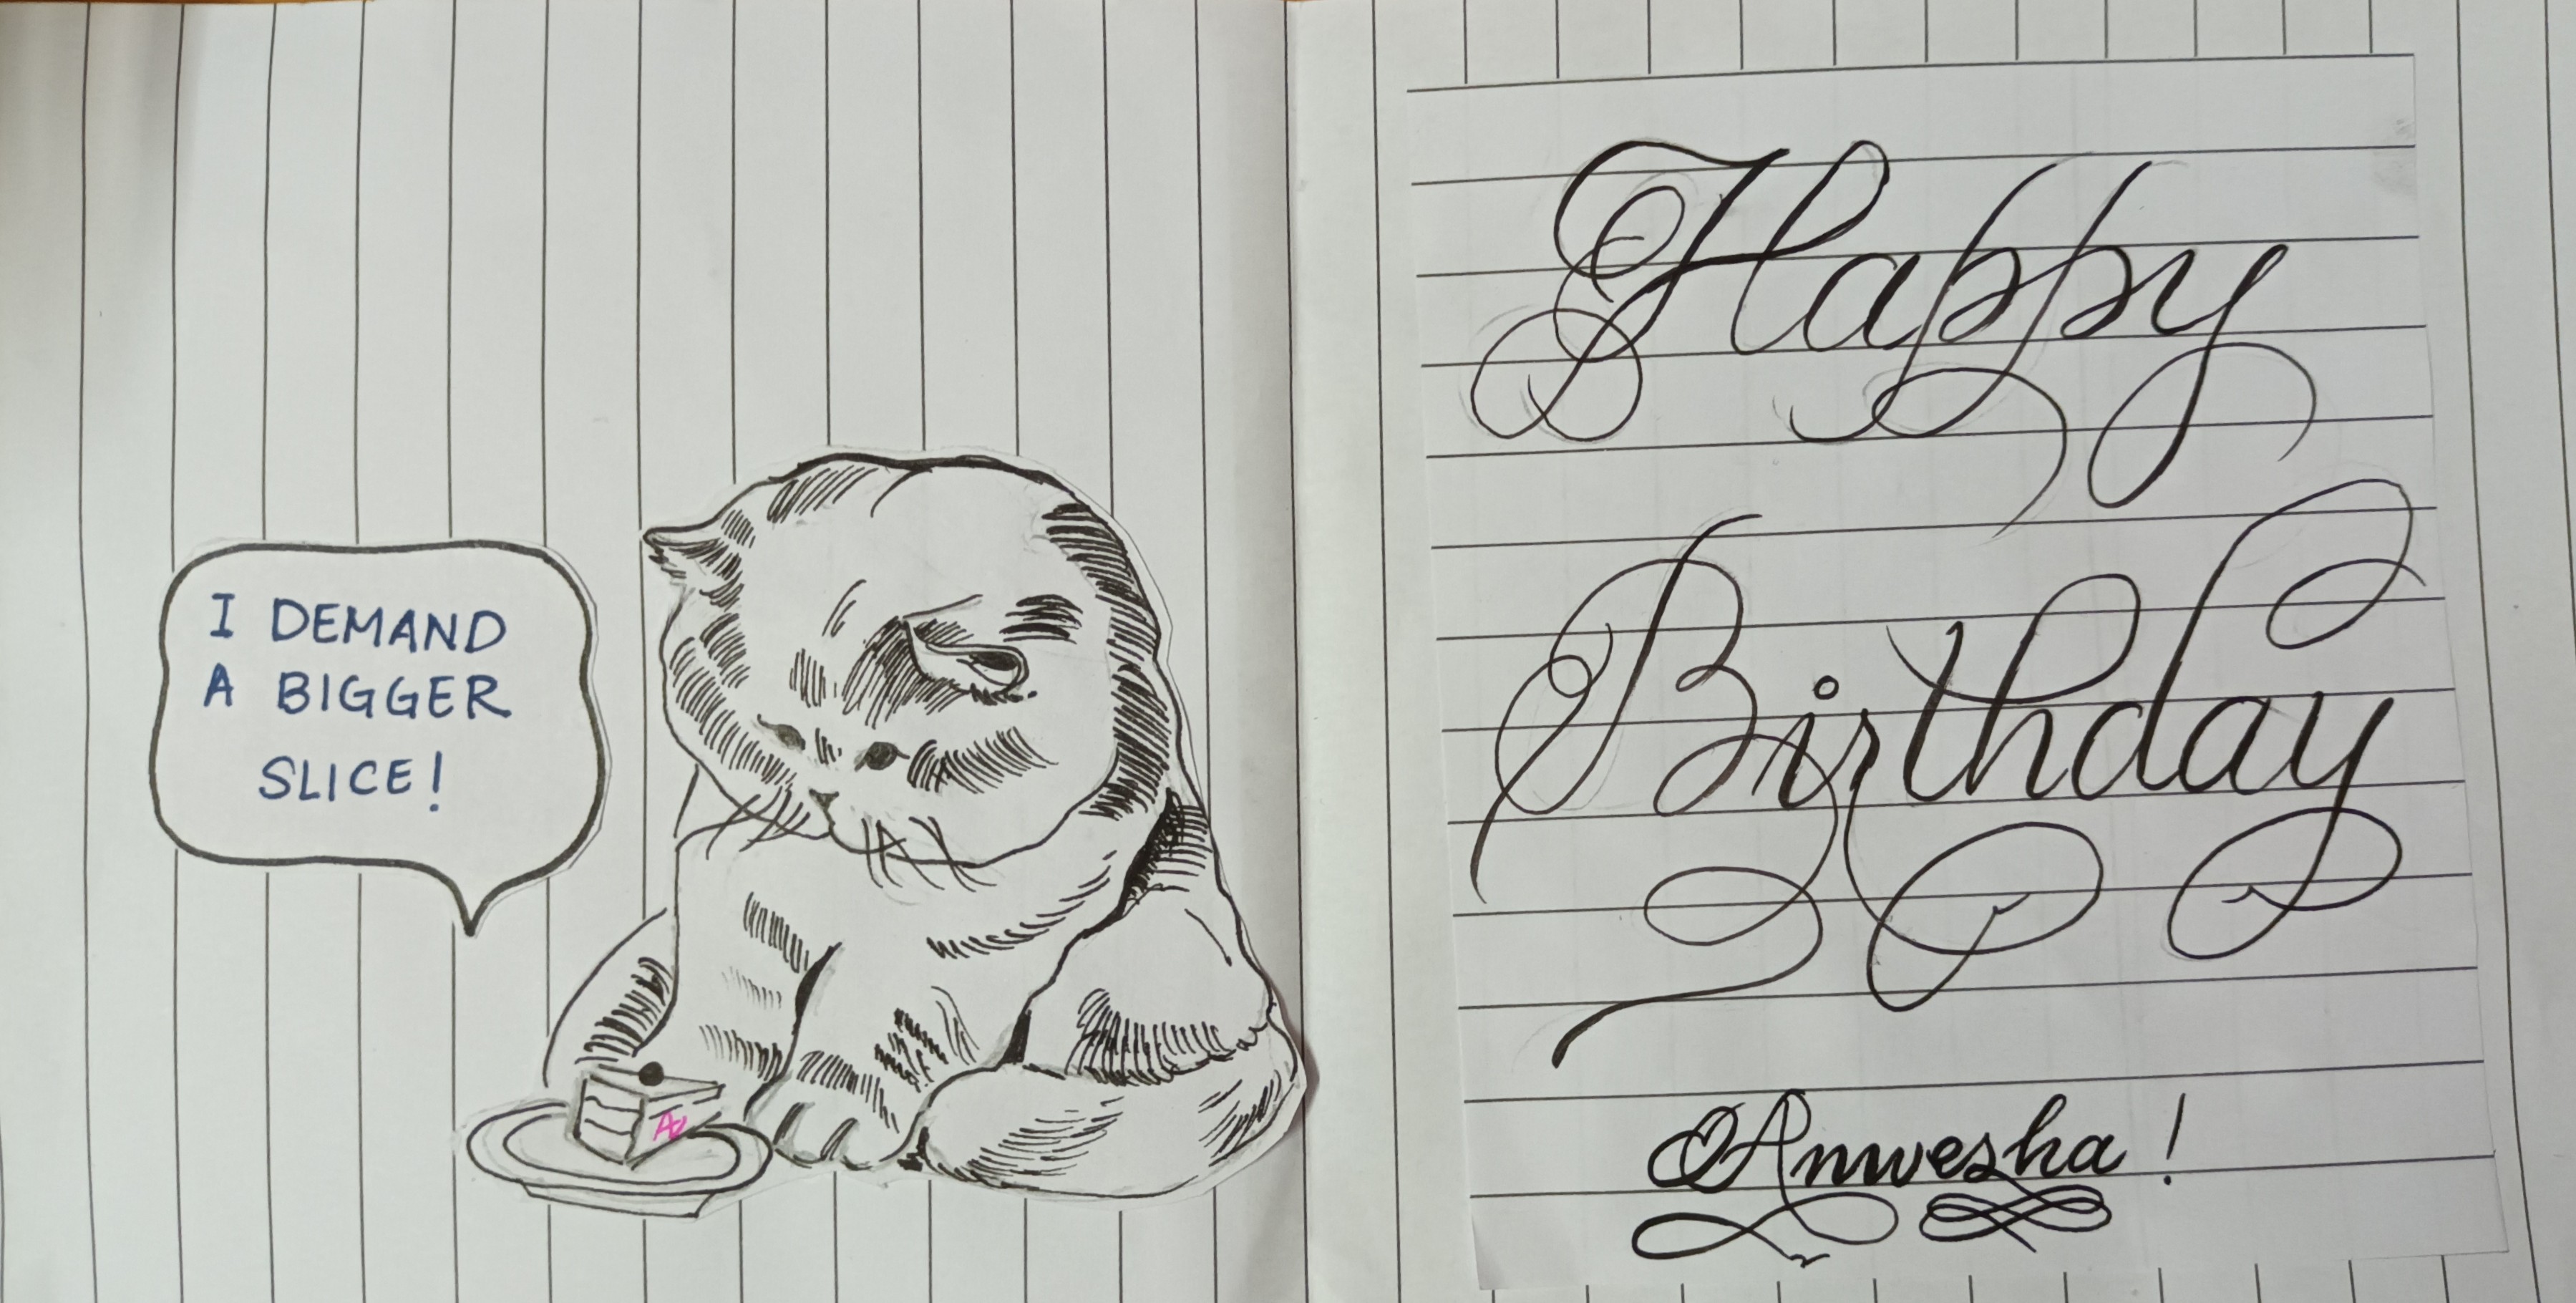 I DEMAND
A BIGGER
SLICE!
A
Happy
Birthday
Anwesha!